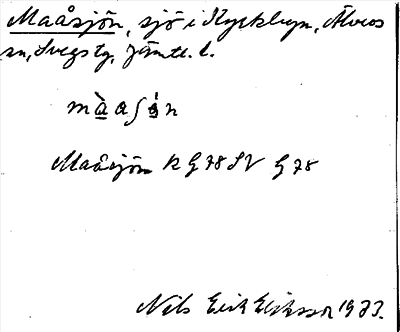 Maåsjön, sjö i Kyrkbyn, Älvros
sn, Svegs tg, Jämtl. l.
màaʃön
Maåsjön R G78 SV G78
Nils Erik Eriksson 1973.